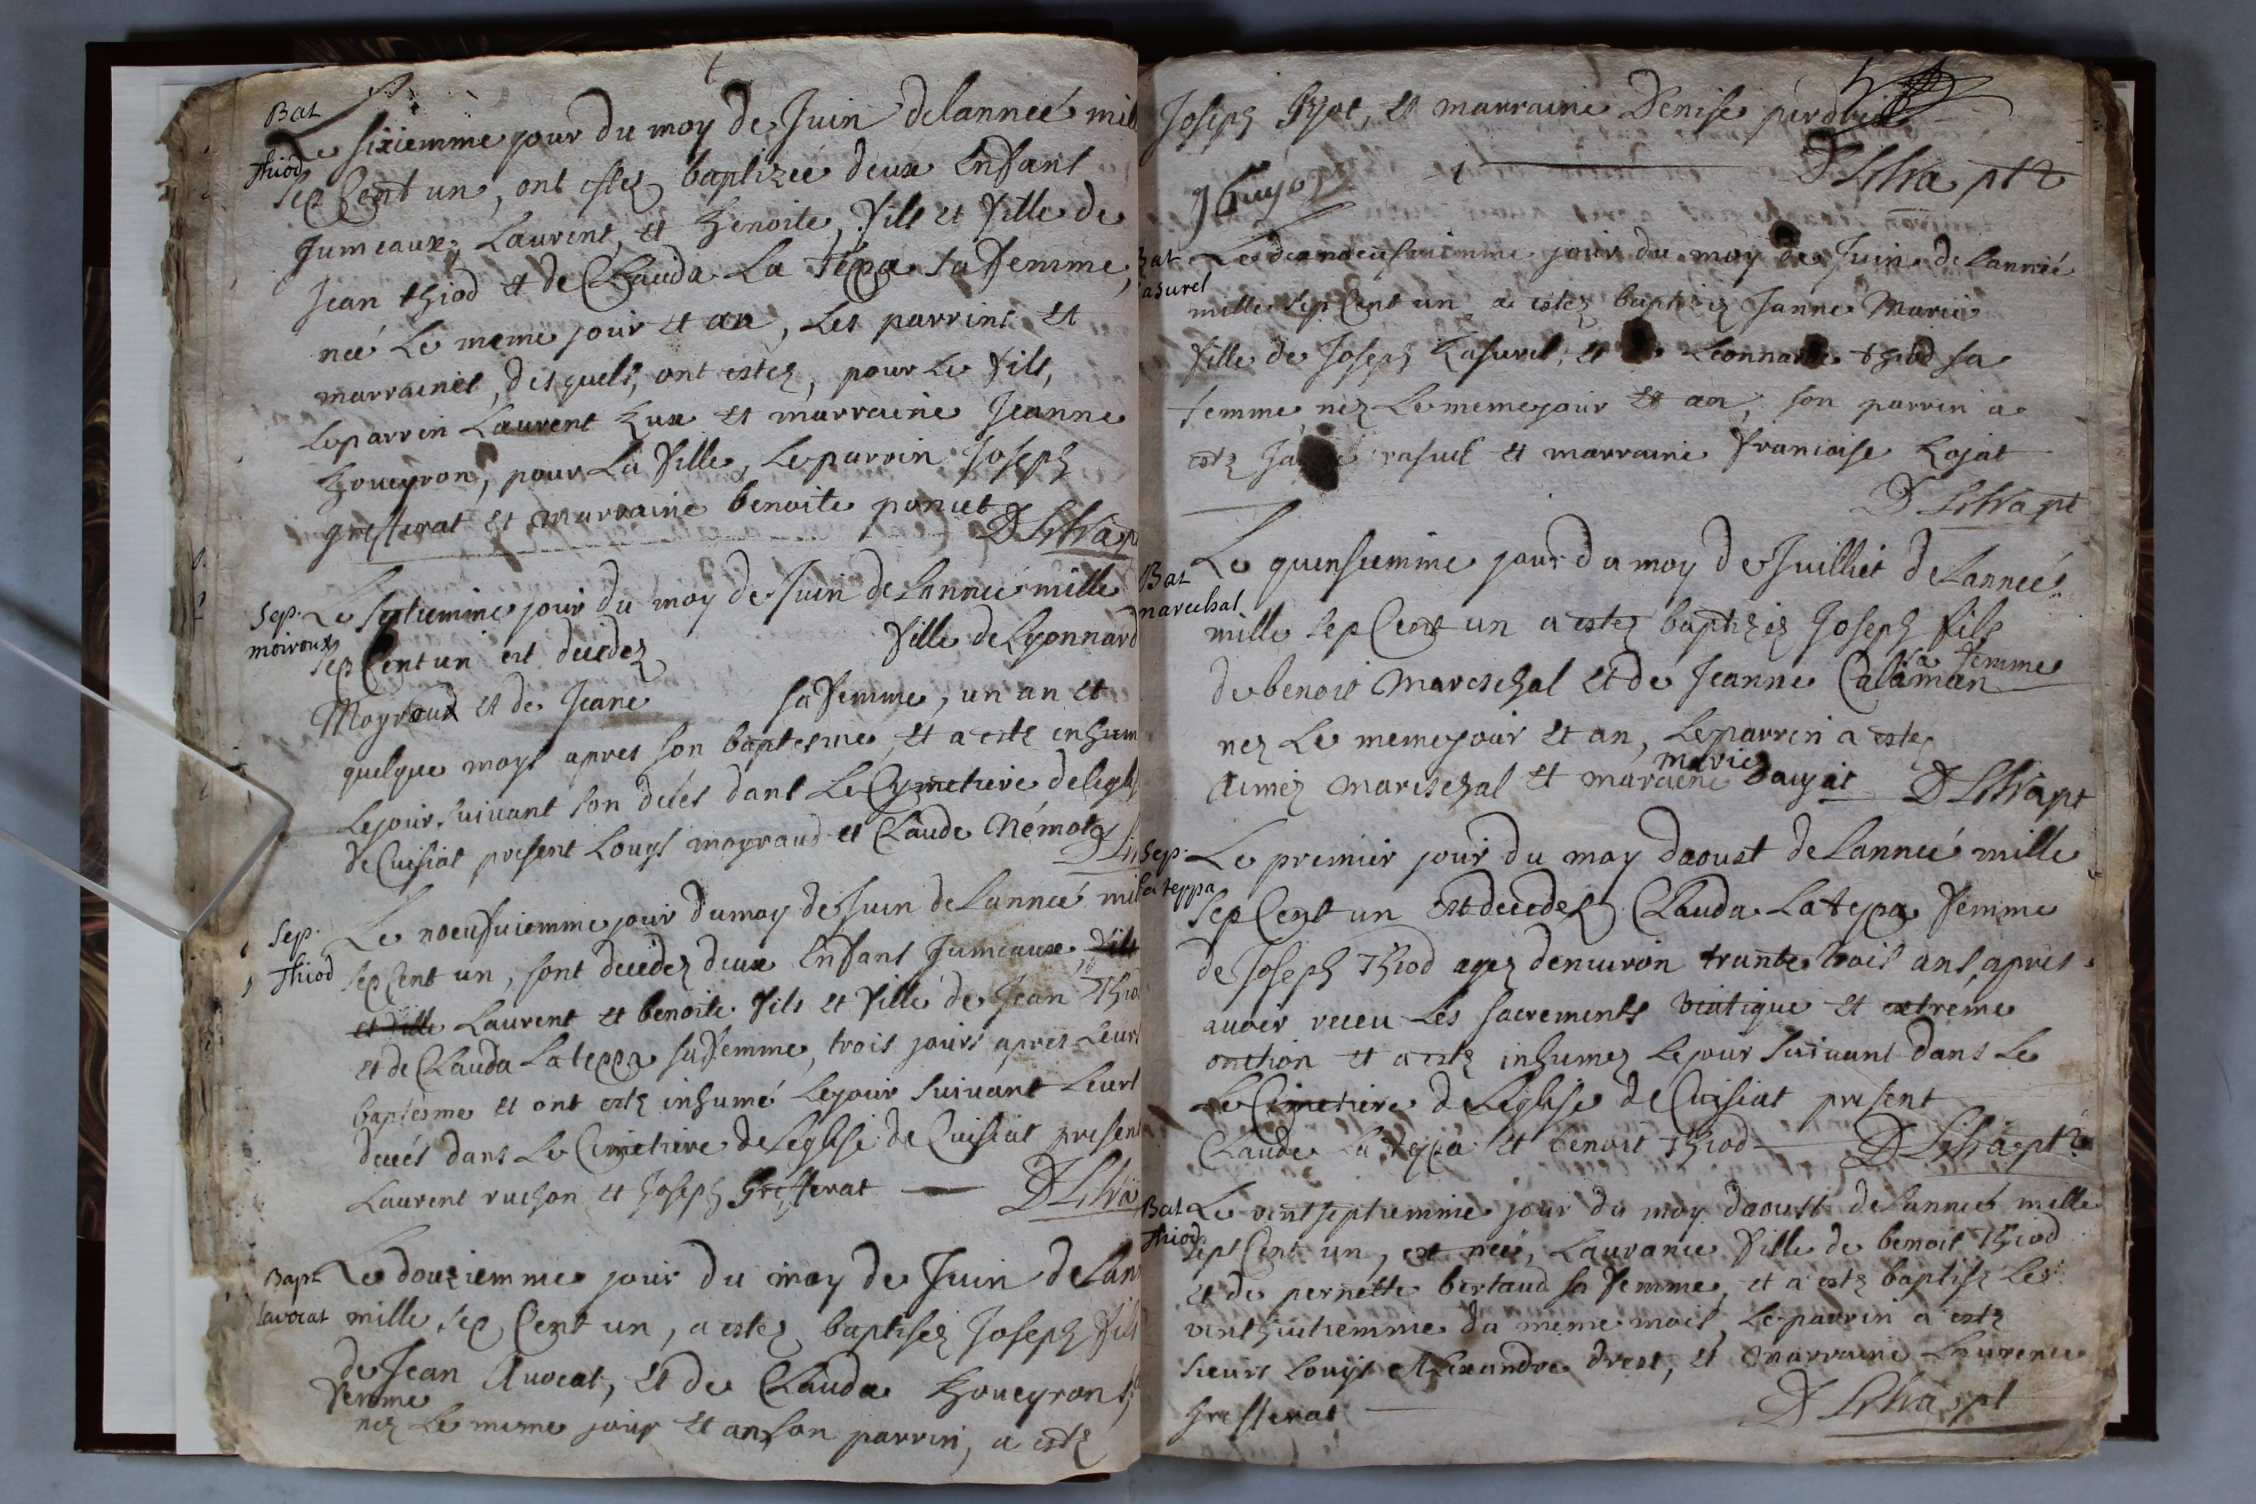 Bat
Thiod
Le sixiemme jour du moy de Juin delanneé mil
sep Cent un, ont estez baptizeé deux Enfans
Jumeaux, Laurent, et Benoite, fils et fille de
Jean thiod et de Clauda La tepa sa femme,
neé Le meme jour et an, Les parrins et
marraines, desquels, ont estez, pour Le fils,
Leparrin Laurent et marraine Jeanne
Boueyron, pour La fille, Leparrin Joseph
grefferat et marraine benoite poncet
D Silva p
Sep.
moiroux
Le septiemme jour du moy de Juin de Lanneé mille
sep Cent un est decedez fille de Lyonnard
Moyroud et de Jeane sa femme, un an et
quelque moys apres son baptesme, et a estz inhum
Lejour suivant son deces dans Le Cymetiere delegli
de Cuisiat present Louys moyraud et Claude Némoz
D Si
Sep.
Thiod
Le noeufuiemme jour dumoy de Juin de Lanneé mil
sep Cent un, sont decedez deux Enfans Jumeaux, fils
et fille Laurent et benoite fils et fille de Jean Thio
et de Clauda Lateppa sa femme, trois jours apres Leur
baptesme et ont estz inhumé Lejour suivant Leurs
deces dans Le Cimetiere de Leglise de Cuisiat present
Laurent ruchon et Joseph Grefferat D Silva
Bapt
Lavocat
Le douziemme jour du moy de Juin de Lan
mille sep Cent un, a estez baptisez Joseph fils
de Jean Avocat, et de Clauda Boueyron sa
femme
nez Le meme jour et an son parrin, a estz
Joseph Pyot, et marraine Denise perdrix
D Silva ptr
Bat
rasurel
jour du moy de Juin de Lanneé
mille sep Cent un, a estez baptisez Janne Marie
fille de Joseph Rasurel, et de Leonnarde thiod sa
femme, nez Le meme jour et an, son parrin a
estz rasurel et marraine francoise Lojat
D Silva pt
Bat
marechal
Le quensiemme jour du moy de Juilliet de Lanneé
mille sep Cent un a estez baptizez Joseph fils
de benoit Mareschal et de Jeanne Calaman sa femme
nez Le meme jour et an, Leparrin a este
Aimez Mareschal et maraine marie dauyat D Silva pt
Sep.
La teppa
Le premier jour du moy daoust de Lanneé mille
sep Cent un est decedez Clauda Latepa femme
de Joseph Thiod agez denuiron trante trois ans, apres
auoir receu Les sacrements viatique et extreme
onction et a estz inhumez Lejour suivant dans Le
Le Cimetiere de Leglise de Cuisiat present
Claude La teppa et benoit Thiod D Silva ptr
Bat
Thiod
Le vint septiemme jour du moy daoust de Lanneé mille
sept Cent un, est neé, Laurance fille de benoit Thiod
et de pernette bertaud sa femme, et a estz baptisz Le
vint huitiemme du meme mois, Le parrin a estz
sieurs Louys Alexandre drest, et marraine Laurence
Grefferat
D Silva pt